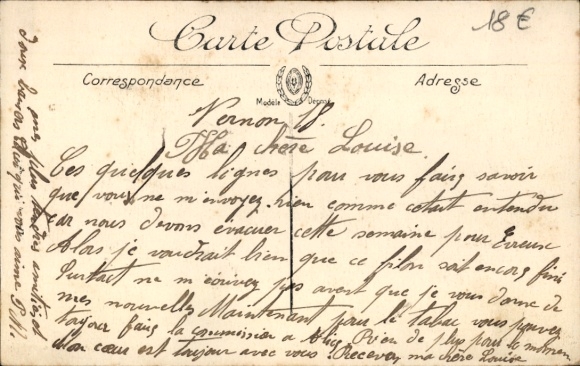 18 €
Carte Postale
Correspondance
Adresse
Modèle Déposé
Vernon 18.
Ma chère Louise.
Ces quelques lignes pour vous faire savoir
que vous ne m'envoyez rien comme cétait entendu
car nous devons évacuer cette semaine pour Evreux
Alors je voudrait bien que ce filon soit encore fini
Surtout ne m'écrivez pas avant que je vous donne de
mes nouvelles Maintenant pour le tabac vous pouvez
toujour faire la commission a Alice Rien de plus pour le moment
Mon cœur est toujour avec vous. Recevez ma chère Louise
mes plus tendres amitiés et
doux baisers qui vous aime